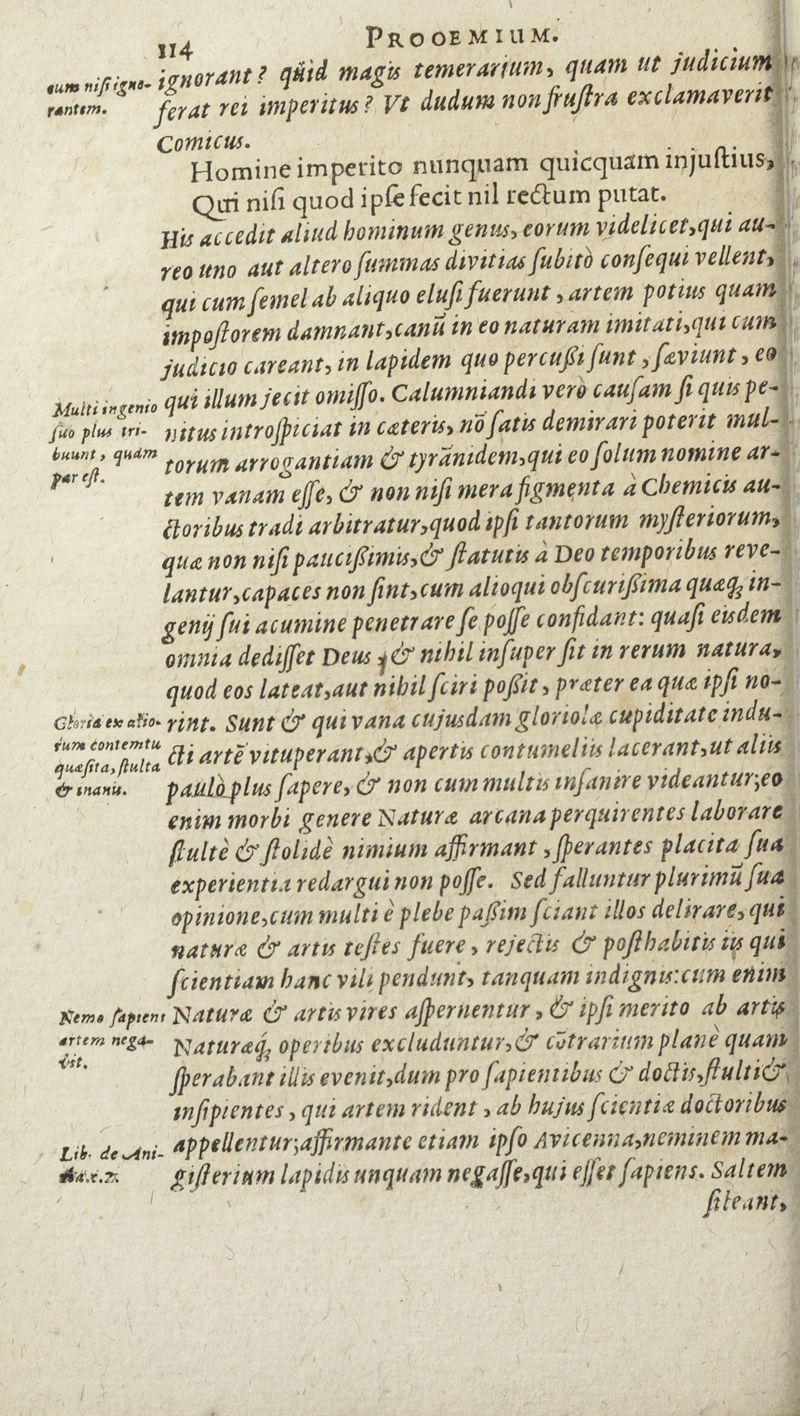 114
PROOEMIUM.
tum nisi igno-
rantem.
ignorant? quid magis temerarium, quam ut judicium
ferat rei imperitus? Vt dudum non frustra exclamaverit
Comicus.
Homine imperito nunquam quicquam injustius,
Qui nisi quod ipse fecit nil rectum putat.
His accedit aliud hominum genus, eorum videlicet, qui au-
reo uno aut altero summas divitias subitò consequi vellent,
qui cum semel ab aliquo elusi fuerunt, artem potius quam
impostorem damnant, canũ in eo naturam imitati, qui cum
judicio careant, in lapidem quo percussi sunt, sæviunt, eo
qui illum jecit omisso. Calumniandi verò causam si quis pe-
nitus introspiciat in cæteris, nō satis demirari poterit mul-
torum arrogantiam & tyrānidem, qui eo solum nomine ar-
tem vanam esse, & non nisi mera figmenta à Chemicis au-
ctoribus tradi arbitratur, quod ipsi tantorum mysteriorum,
quæ non nisi paucissimis, & statutis à Deo temporibus reve-
lantur, capaces non sint, cum alioqui obscurissima quæq; in-
genij sui acumine penetrare se posse confidant: quasi eisdem
omnia dedisset Deus, & nihil insuper sit in rerum natura,
quod eos lateat, aut nihil sciri possit, præter ea quæ ipsi no-
rint. Sunt & qui vana cujusdam gloriolæ cupiditate indu-
cti artē vituperant, & apertis contumeliis lacerant, ut aliis
paulò plus sapere, & non cum multis insanire videantur; eo
enim morbi genere Naturæ arcana perquirentes laborare
stultè & stolidè nimium affirmant, sperantes placita sua
experientia redargui non posse. Sed falluntur plurimũ sua
opinione, cum multi è plebe passim sciant illos delirare, qui
naturæ & artis testes fuere, rejectis & posthabitis iis qui
scientiam hanc vili pendunt, tanquam indignis: cum enim
Naturæ & artis vires aspernentur, & ipsi merito ab artis
Naturæq; operibus excluduntur, & cōtrarium planè quam
sperabant illis evenit, dum pro sapientibus & doctis, stulti &
insipientes, qui artem rident, ab hujus scientiæ doctoribus
appellentur; affirmante etiam ipso Avicenna, neminem ma-
gisterium lapidis unquam negasse, qui esset sapiens. Saltem
sileant,
Multi ingenio
suo plus tri-
buunt, quàm
par est.
Gloria ex alio-
rum contemtu
quæsita, stulta
& inanis.
Nemo sapiens
artem nega-
vit.
Lib. de Ani-